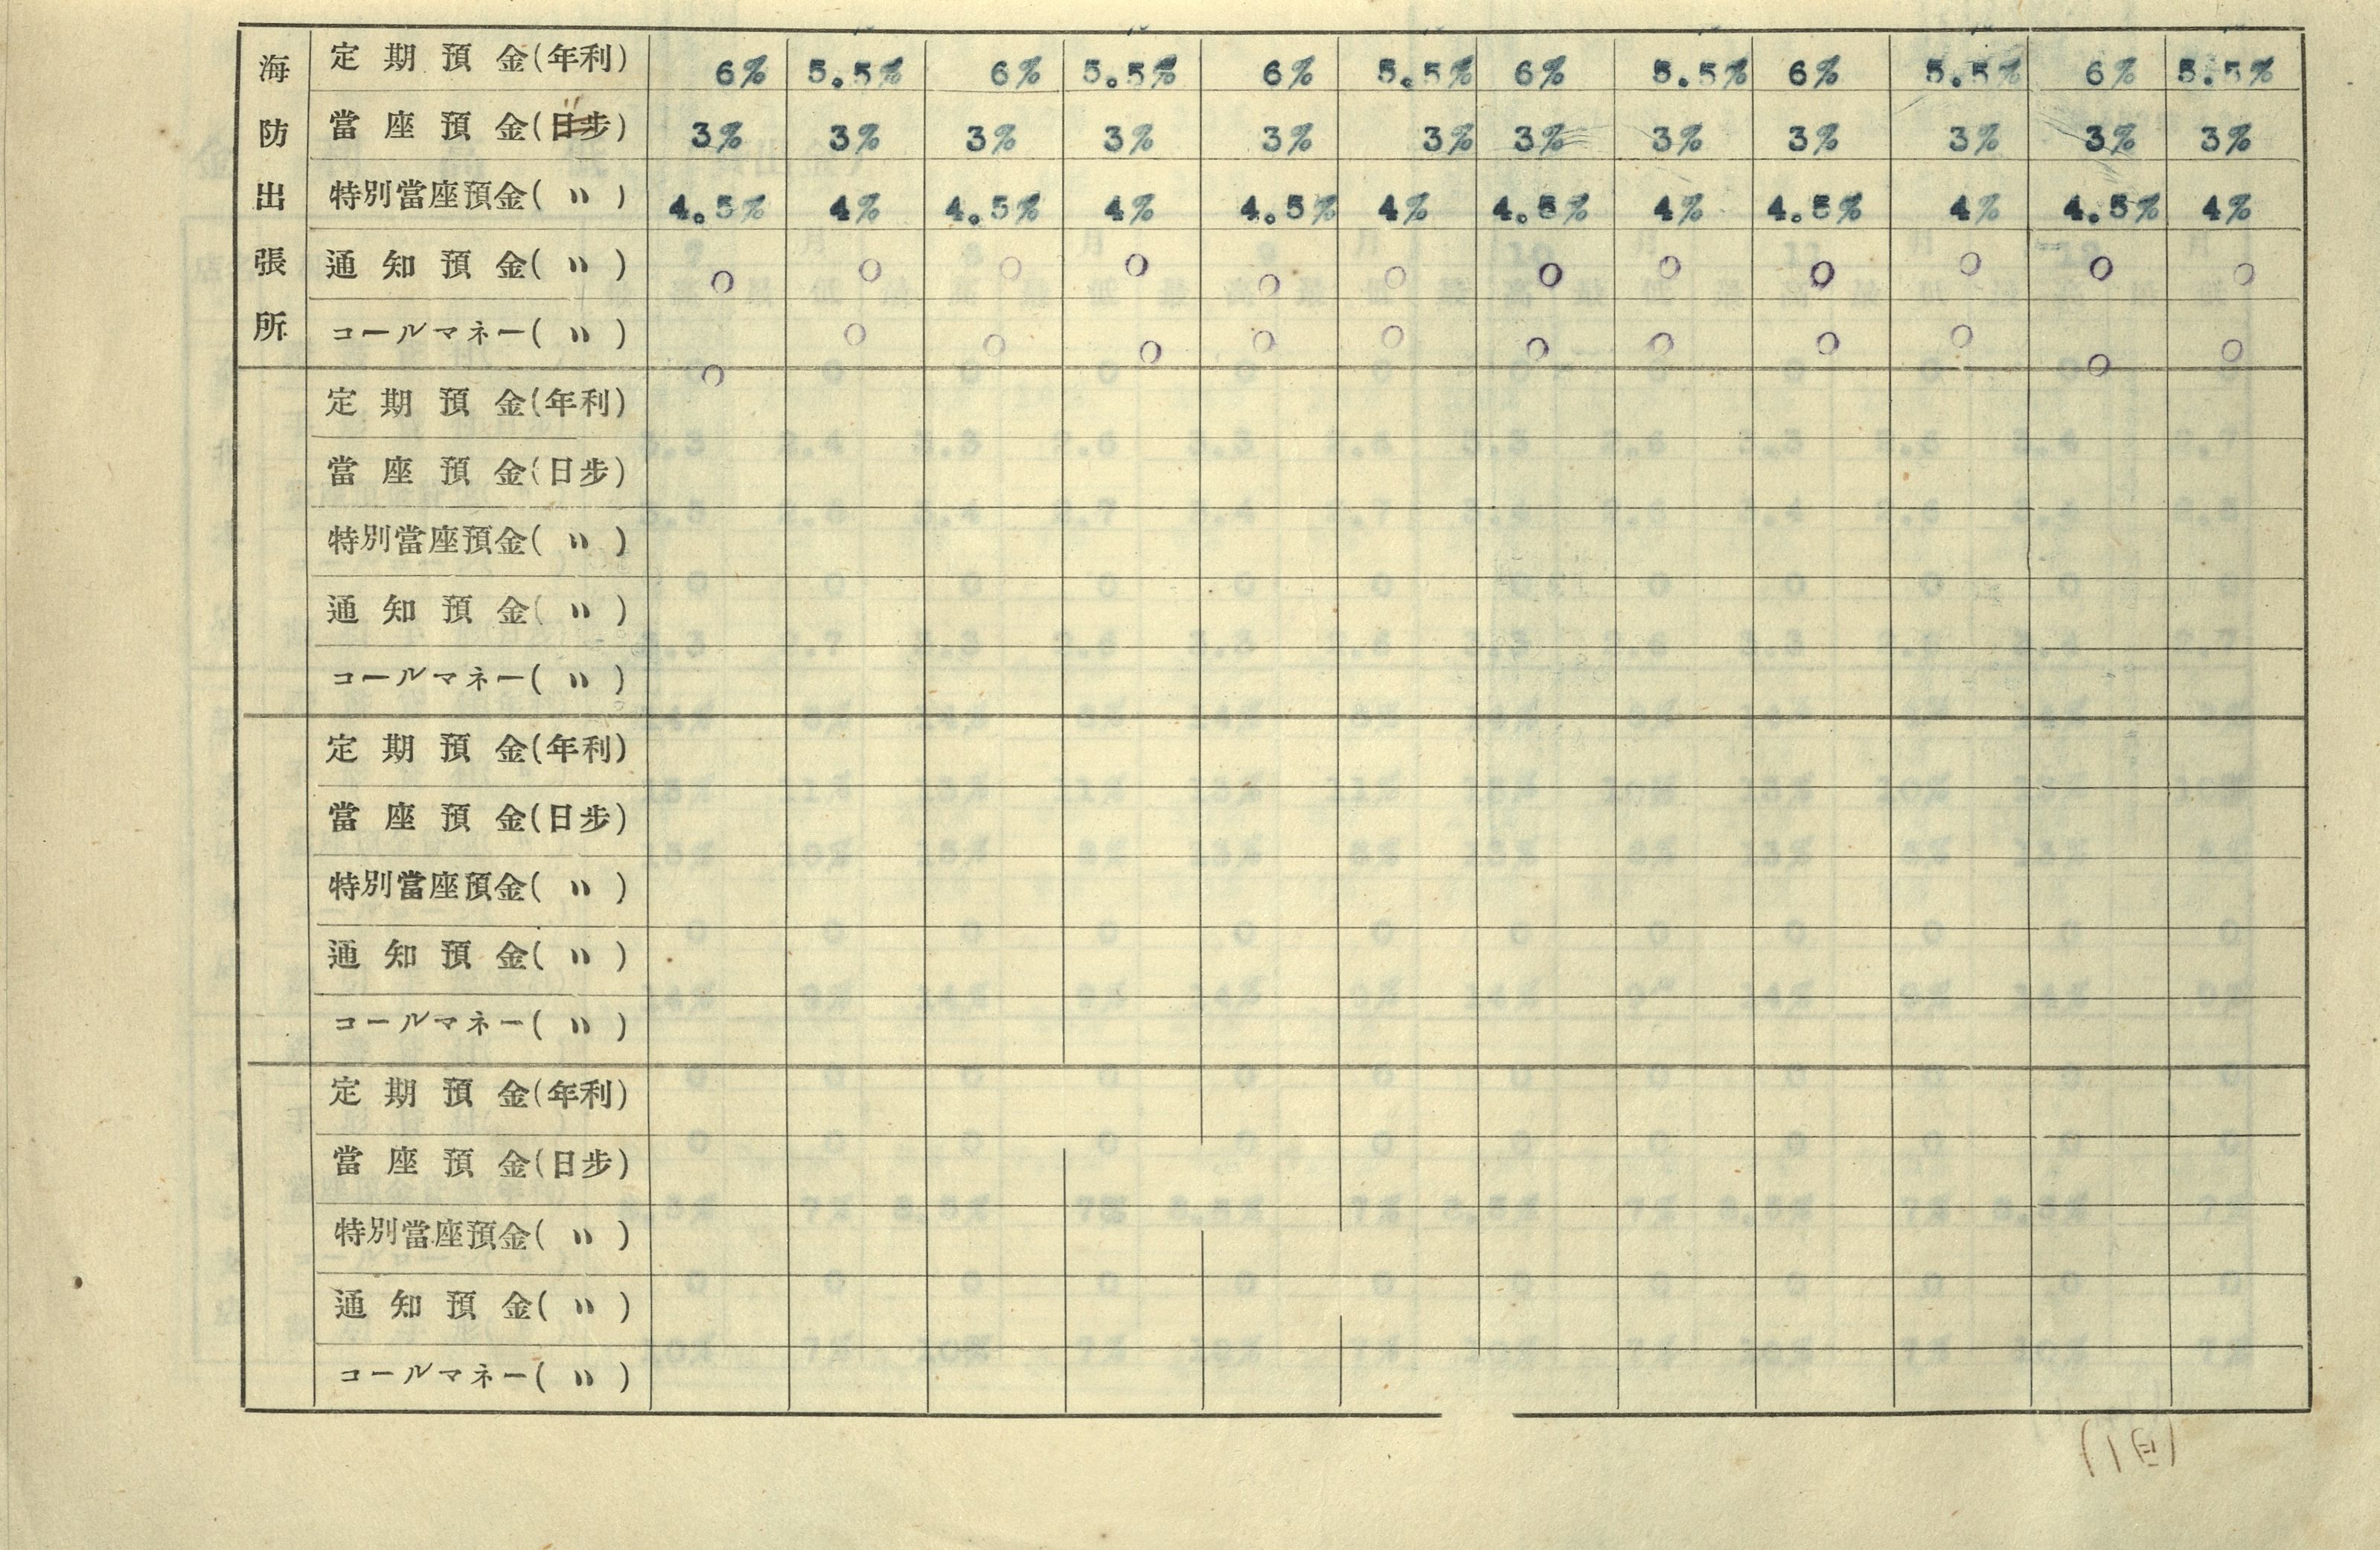 海防出張所
定期預金(年利) 6% 5.5% 6% 5.5% 6% 5.5% 6% 5.5% 6% 5.5% 6% 5.5%
當座預金(日步) 3% 3% 3% 3% 3% 3% 3% 3% 3% 3% 3% 3%
特別當座預金( 〃 ) 4.5% 4% 4.5% 4% 4.5% 4% 4.5% 4% 4.5% 4% 4.5% 4%
通知預金( 〃 ) 0 0 0 0 0 0 0 0 0 0 0 0
コールマネー( 〃 ) 0 0 0 0 0 0 0 0 0 0 0 0
定期預金(年利)
當座預金(日步)
特別當座預金( 〃 )
通知預金( 〃 )
コールマネー( 〃 )
定期預金(年利)
當座預金(日步)
特別當座預金( 〃 )
通知預金( 〃 )
コールマネー( 〃 )
定期預金(年利)
當座預金(日步)
特別當座預金( 〃 )
通知預金( 〃 )
コールマネー( 〃 )